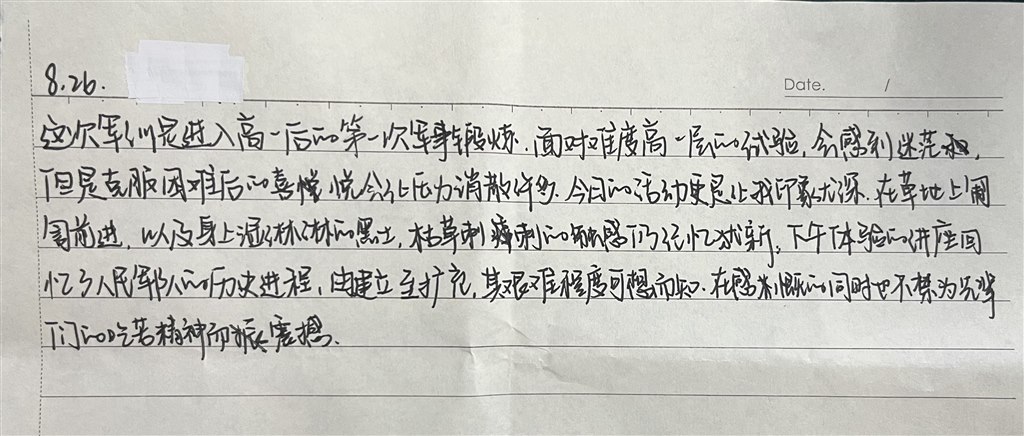 8.26.
Date. /
这次军训是进入高一后的第一次军事锻炼.面对难度高一层的试验,会感到迷茫,
但是克服困难后的喜悦会让压力消散许多.今日的活动更是让我印象尤深.在草地上匍
匐前进,以及身上湿淋淋的黑土,枯草刺痒刺的触感仍记忆犹新,下午体验的讲座回
忆了人民军队的历史进程,由建立至扩充,其艰难程度可想而知.在感慨的同时也不禁为先辈
们的吃苦精神而振震撼.